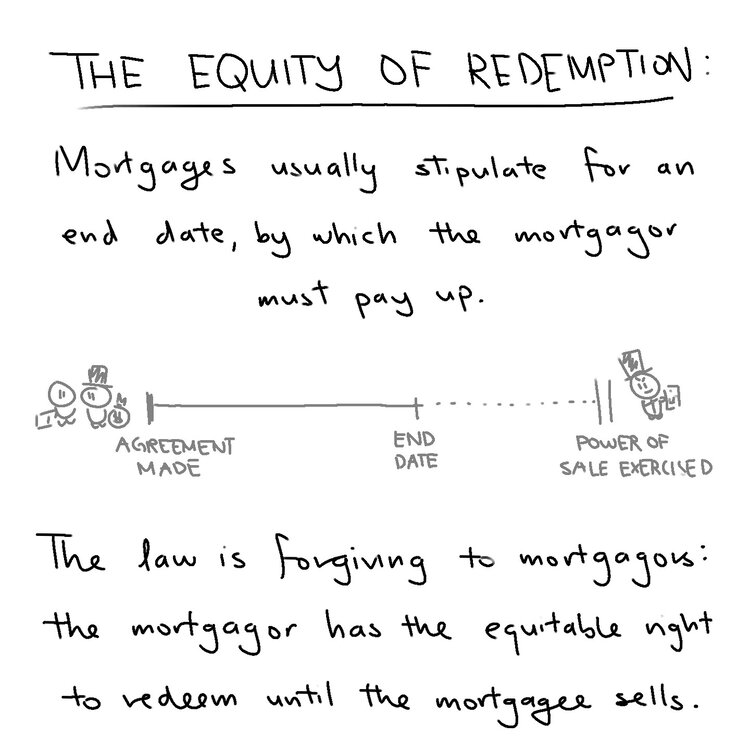 THE EQUITY OF REDEMPTION:
Mortgages usually stipulate for an
end date, by which the mortgagor
must pay up.
AGREEMENT
MADE
END
DATE
POWER OF
SALE EXERCISED
The law is forgiving to mortgagors:
the mortgagor has the equitable right
to redeem until the mortgagee sells.